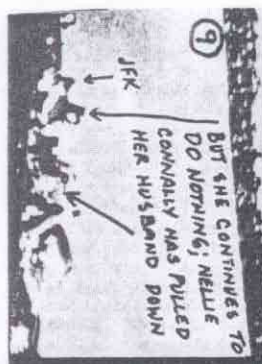 9
BUT SHE CONTINUES TO
DO NOTHING; NELLIE
CONNALLY HAS PULLED
HER HUSBAND DOWN
JFK